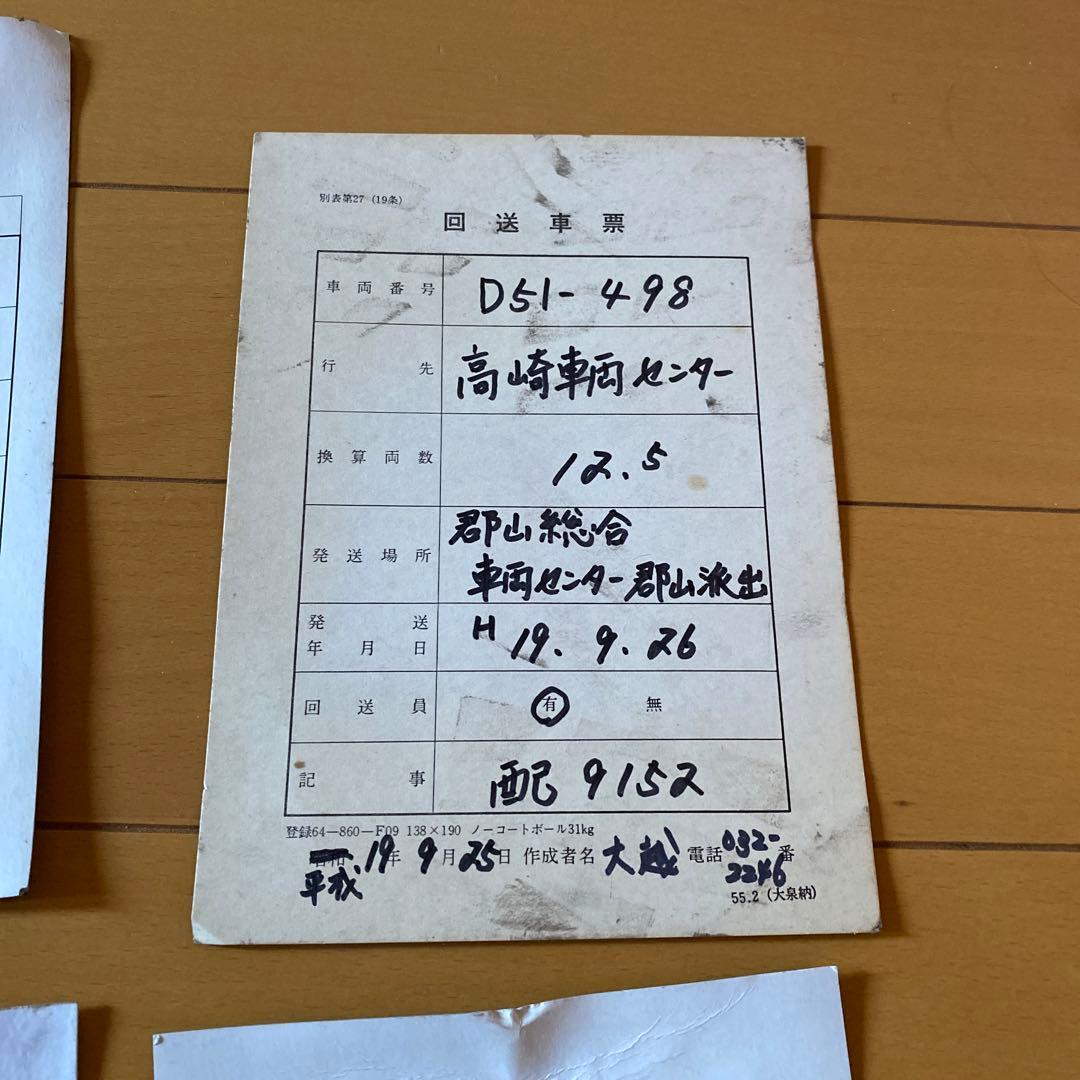 別表第27 (19条)
回送車票
車両番号 D51-498
行先 高崎車両センター
換算両数 12.5
発送場所 郡山総合
車両センター郡山派出
発送
年月日 H19.9.26
回送員 有 無
記事 配9152
登録64-860-F09 138×190 ノーコートボール31kg
昭和 19年9月25日 作成者名 大越 電話 032-
平成 2246 番
55.2 (大泉納)